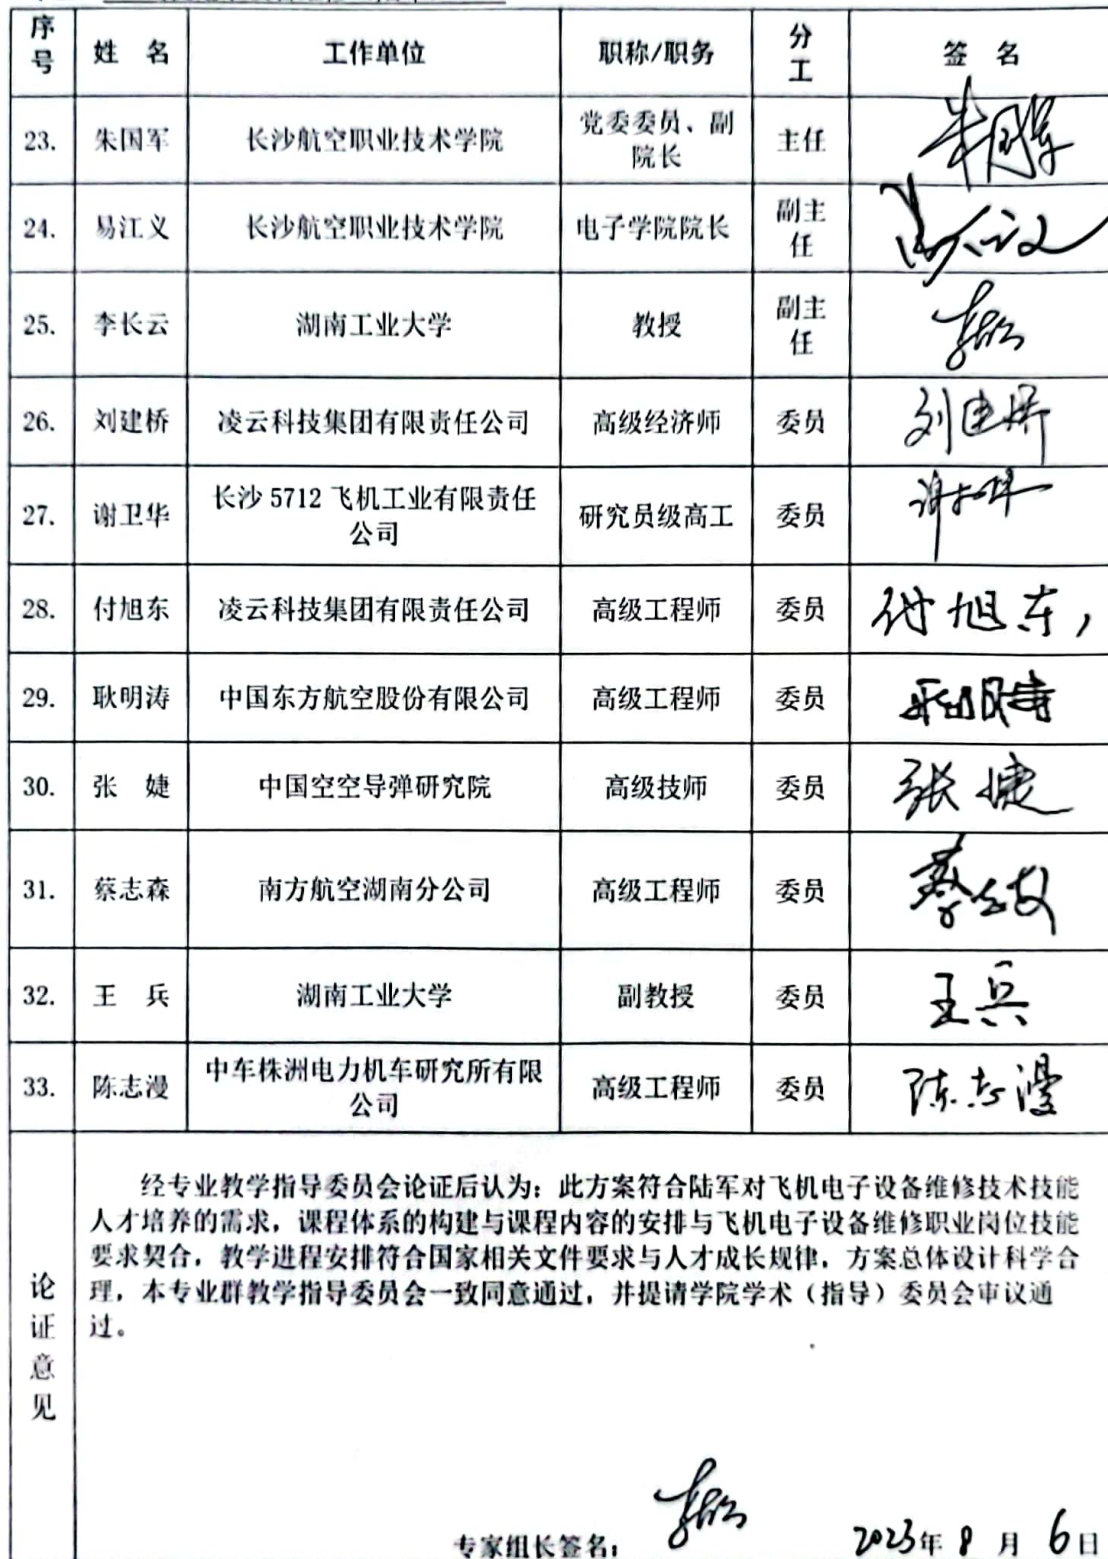 序号 姓 名 工作单位 职称/职务 分工 签 名
23. 朱国军 长沙航空职业技术学院 党委委员、副院长 主任 朱国军
24. 易江义 长沙航空职业技术学院 电子学院院长 副主任
25. 李长云 湖南工业大学 教授 副主任
26. 刘建桥 凌云科技集团有限责任公司 高级经济师 委员 刘建桥
27. 谢卫华 长沙 5712 飞机工业有限责任公司 研究员级高工 委员
28. 付旭东 凌云科技集团有限责任公司 高级工程师 委员 付旭东
29. 耿明涛 中国东方航空股份有限公司 高级工程师 委员
30. 张 婕 中国空空导弹研究院 高级技师 委员 张婕
31. 蔡志森 南方航空湖南分公司 高级工程师 委员
32. 王 兵 湖南工业大学 副教授 委员 王兵
33. 陈志漫 中车株洲电力机车研究所有限公司 高级工程师 委员 陈志漫
论证意见
经专业教学指导委员会论证后认为：此方案符合陆军对飞机电子设备维修技术技能
人才培养的需求，课程体系的构建与课程内容的安排与飞机电子设备维修职业岗位技能
要求契合，教学进程安排符合国家相关文件要求与人才成长规律，方案总体设计科学合
理，本专业群教学指导委员会一致同意通过，并提请学院学术（指导）委员会审议通
过。
专家组长签名： 2023年 8 月 6日